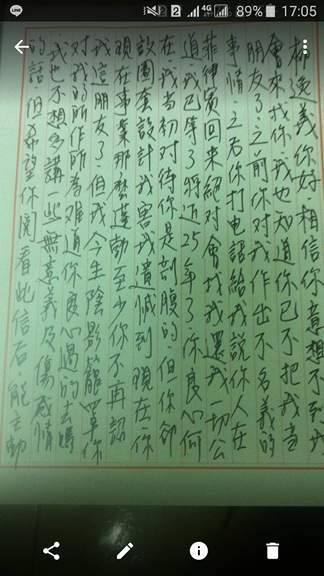 LINE 2 4G 89% 17:05
逸義你好 相信你意想不到我
會來找你 我也知道你已不把我當
朋友了 之前你對我作出不名義的
事情 之后你打電話給我說你人在
菲律賓回來絕對會找我還我一切公
道 我已等了將近25年了 你良心何
在 我當初對待你是剖腹的 但你卻
設圈套設計我害我遺憾到現在 你
現在事業那麼蓬勃至少你不再認
我這朋友了 但我今生陰影籠罩 你
對我的所作所為難道你良心過的去嗎
我也不想多講些無意義及傷感情
的話 但希望你閱看此信后能主動